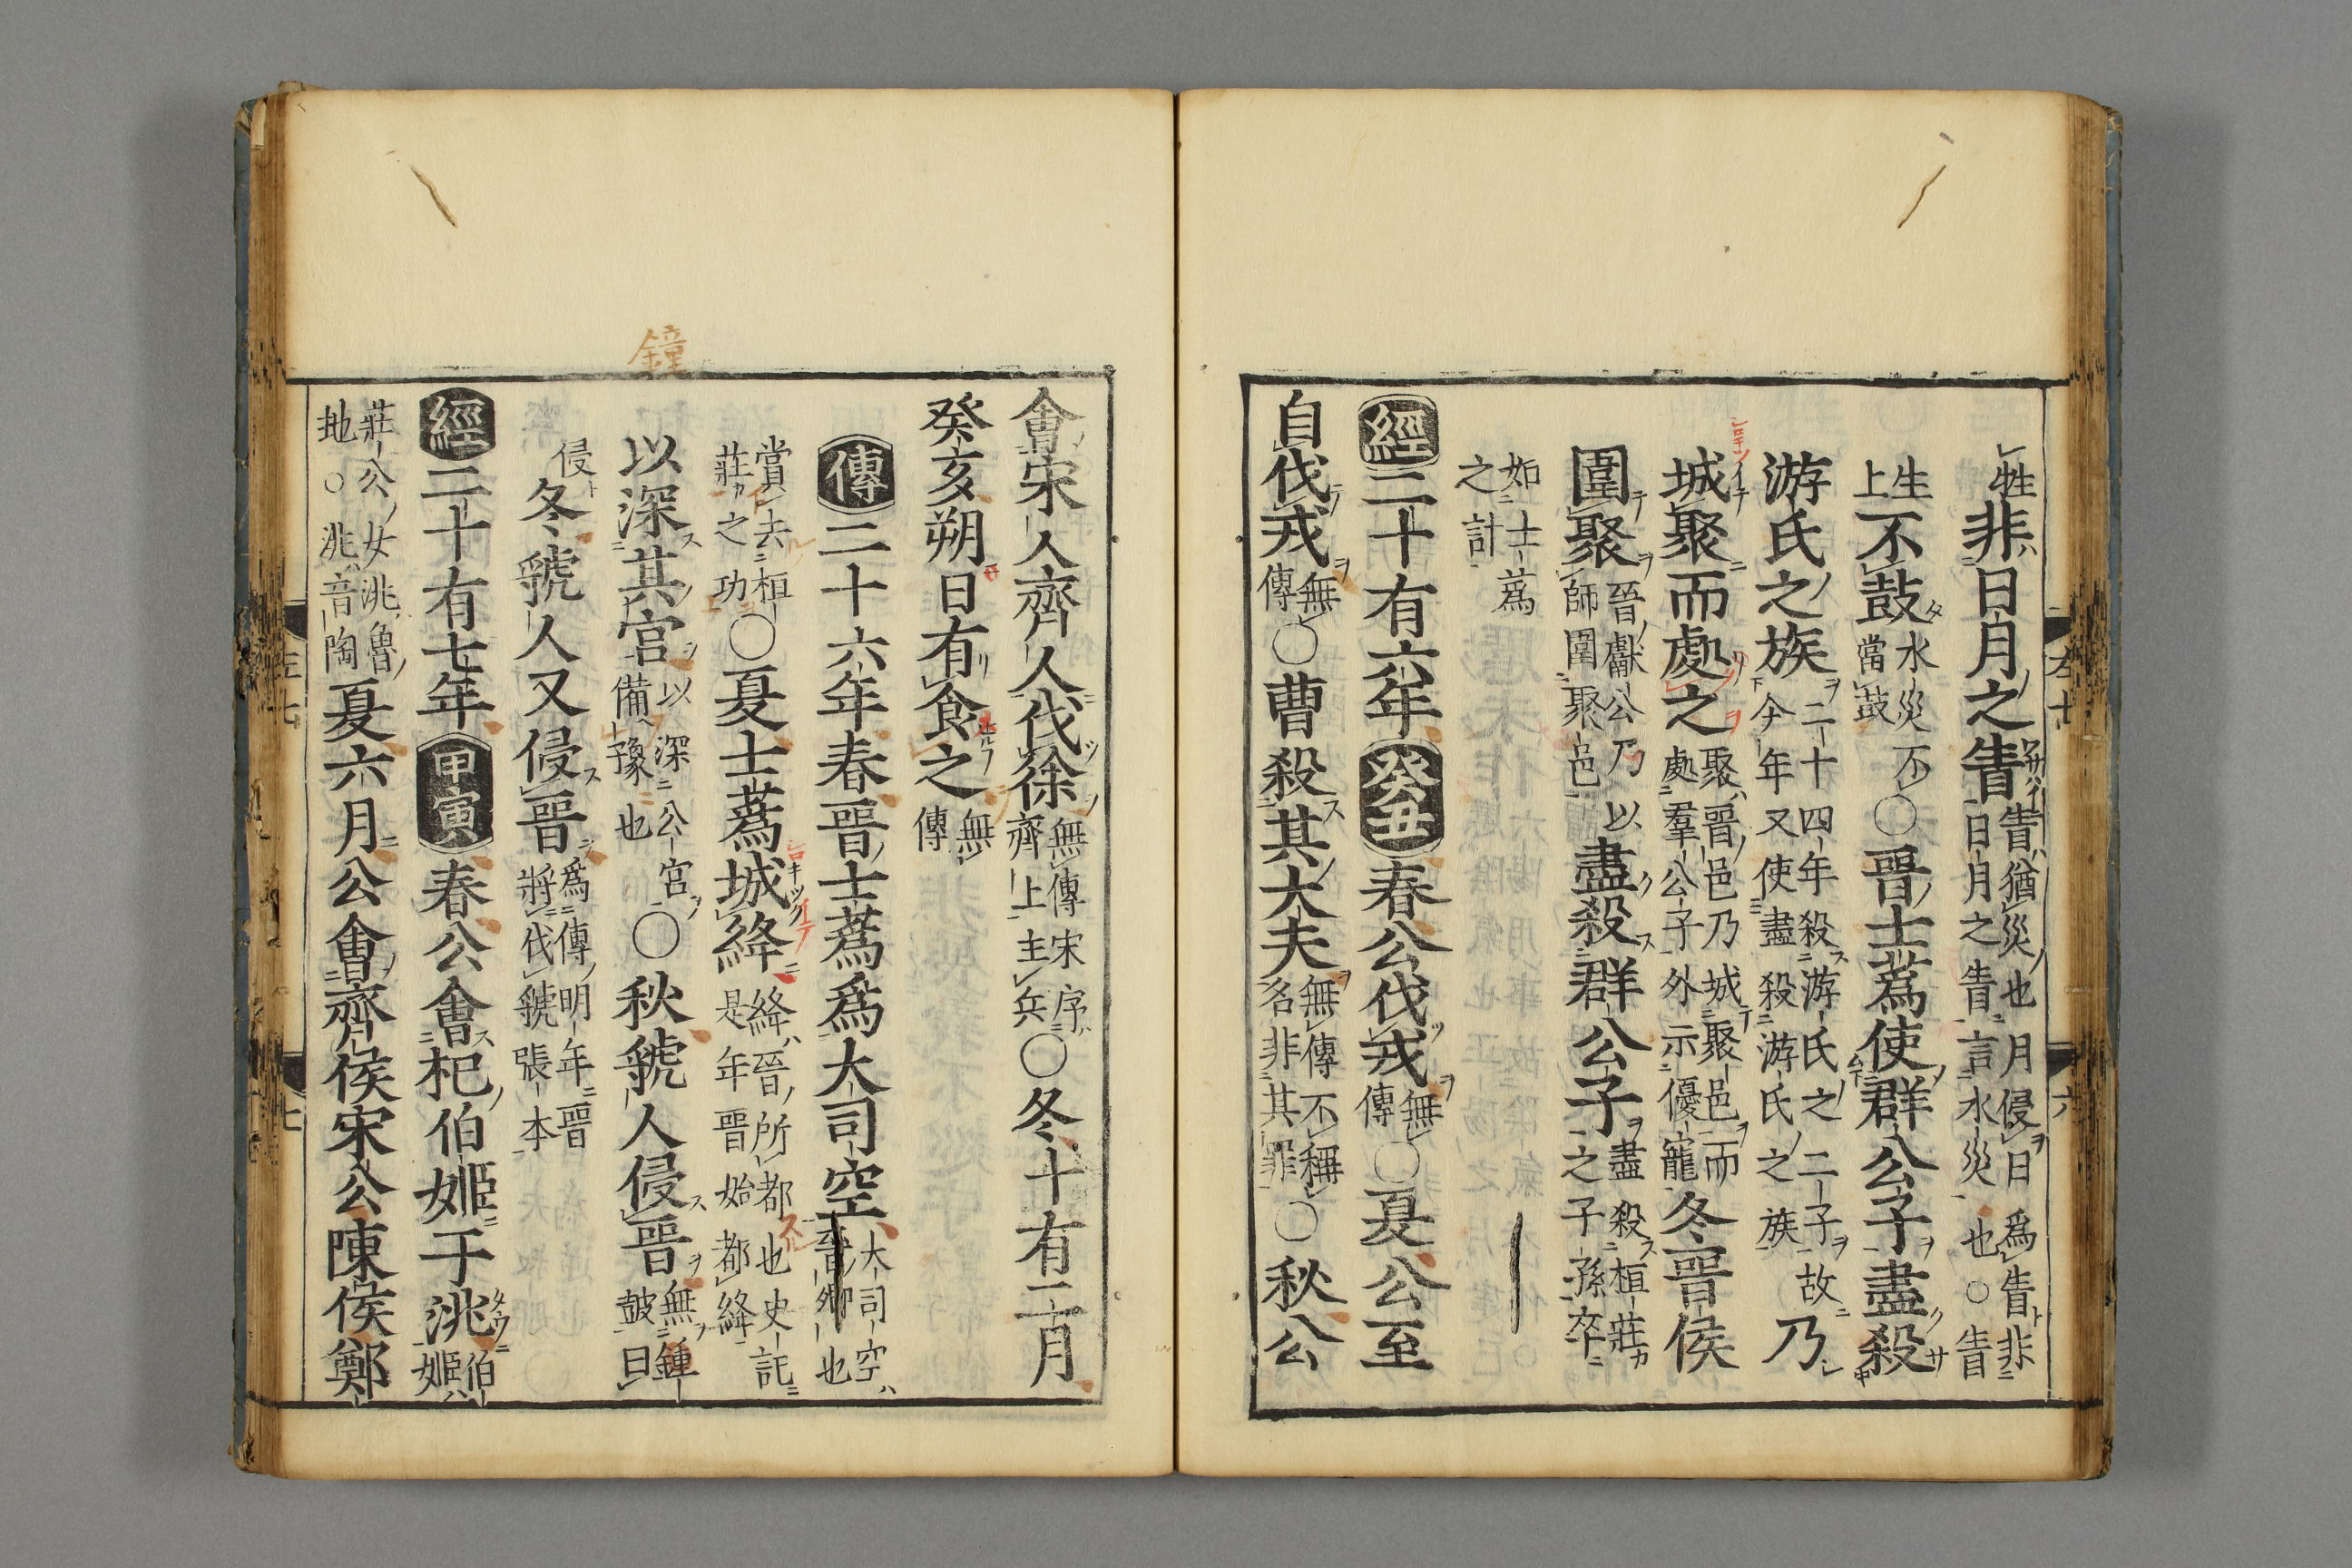 牲非日月之眚眚猶災也月侵日爲眚非日月之眚言水災也○眚
生上不鼓水災不當鼓○晉士蒍使群公子盡殺
游氏之族二十四年殺游氏之二子故今年又使盡殺游氏之族乃
城聚而處之聚晉邑乃城聚邑而處羣公子外示優寵冬晉侯
圍聚晉獻公乃以師圍聚邑盡殺群公子盡殺桓莊之子孫卒
如士蒍之計
經二十有六年癸丑春公伐戎無傳○夏公至
自伐戎無傳○曹殺其大夫無傳不稱名非其罪○秋公
會宋人齊人伐徐無傳宋序齊上主兵○冬十有二月
癸亥朔日有食之無傳
傳二十六年春晉士蒍爲大司空大司空晉卿也
賞去桓莊之功○夏士蒍城絳絳晉所都也史記是年晉始都絳
鐘
以深其宮以深公宮備豫也○秋虢人侵晉無鍾鼓曰
侵冬虢人又侵晉爲傳明年晉將伐虢張本
經二十有七年甲寅春公會杞伯姬于洮伯姬
莊公女洮魯地○洮音陶夏六月公會齊侯宋公陳侯鄭